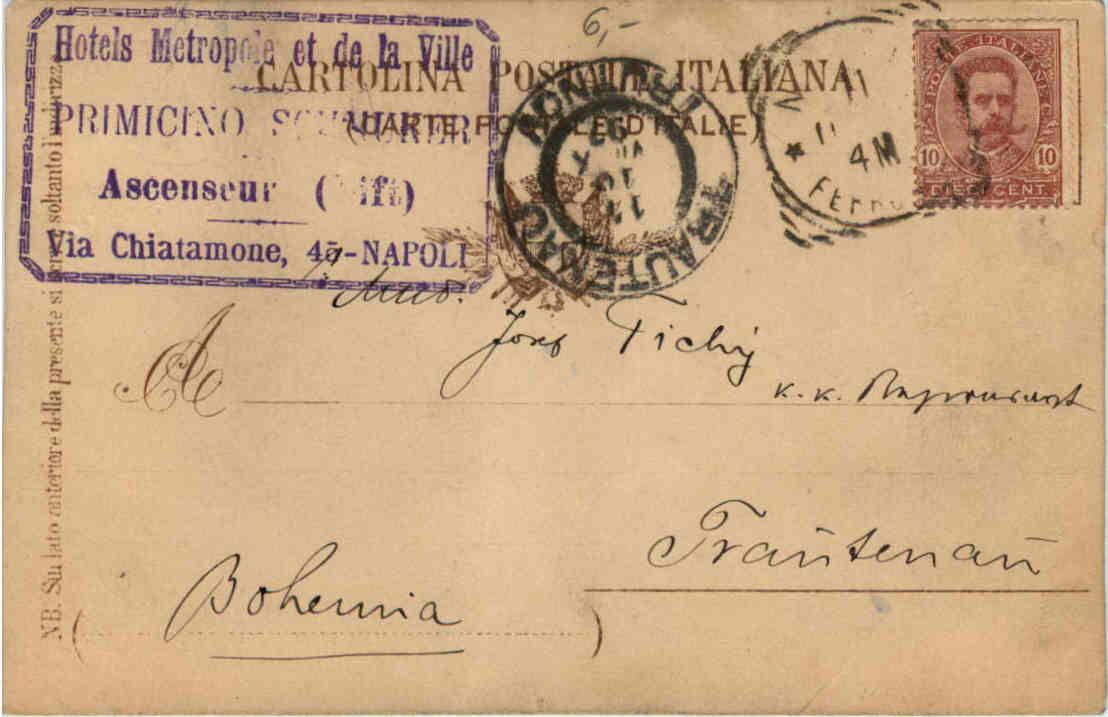 6,-
Hotels Metropole et de la Ville
PRIMICINO
Ascenseur (Lift)
Via Chiatamone, 45-NAPOLI
CARTOLINA POSTALE ITALIANA
(CARTE POSTALE D'ITALIE)
TRAUTENAU
TRUTNOV
11
10
VII
97
4M
FERRO
POSTE ITALIANE
10 10
DIECI CENT.
NB. Sul lato anteriore della presente si scrive soltanto l'indirizzo
A
Josef Tichý
k. k.
Trautenau
(Bohemia)